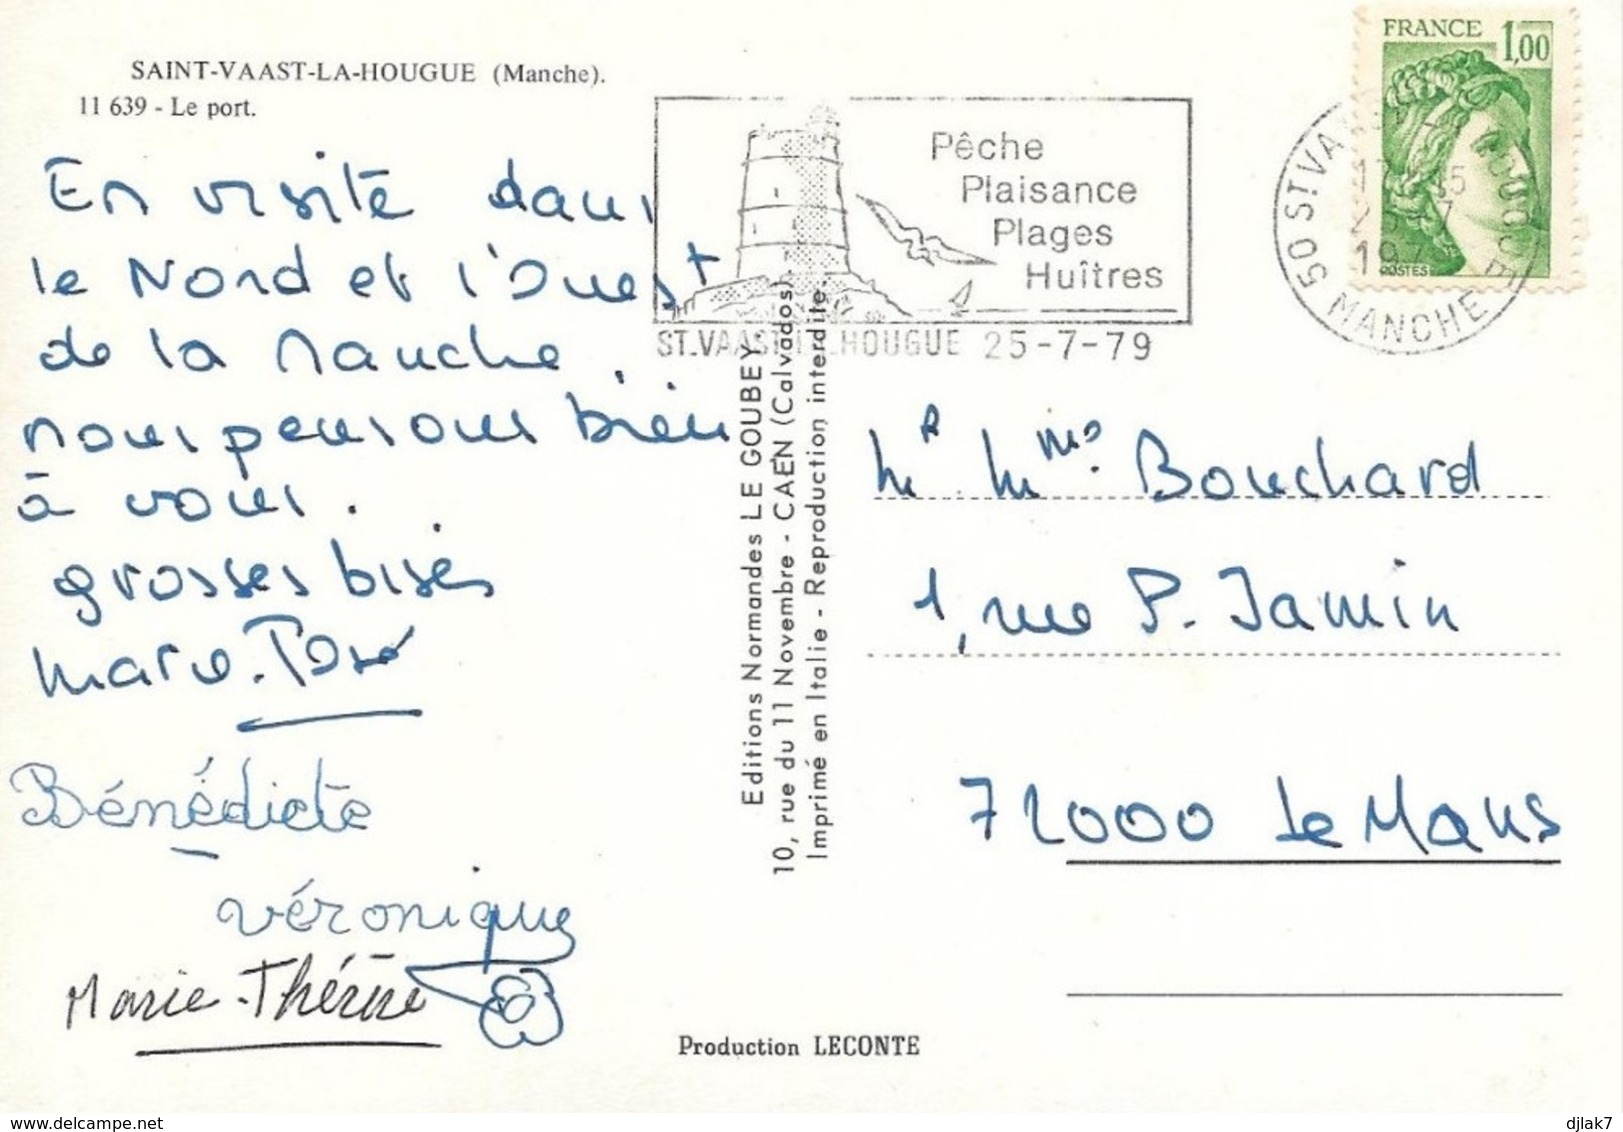 SAINT-VAAST-LA-HOUGUE (Manche).
11 639 - Le port.
En visite dans
le Nord et l'Ouest
de la Manche.
nous pensons bien
à vous.
grosses bises
Marie-José
Bénédicte
Véronique
Marie-Thérèse
Pêche
Plaisance
Plages
Huîtres
ST.VAAST-LA-HOUGUE 25-7-79
FRANCE 1,00
POSTES
50 ST VAAST-LA-HOUGUE
MANCHE
Editions Normandes LE GOUBEY
10, rue du 11 Novembre - CAEN (Calvados)
Imprimé en Italie - Reproduction interdite.
Mr Mme Bouchard
1, rue P. Jamin
72000 Le Mans
Production LECONTE
djlak7